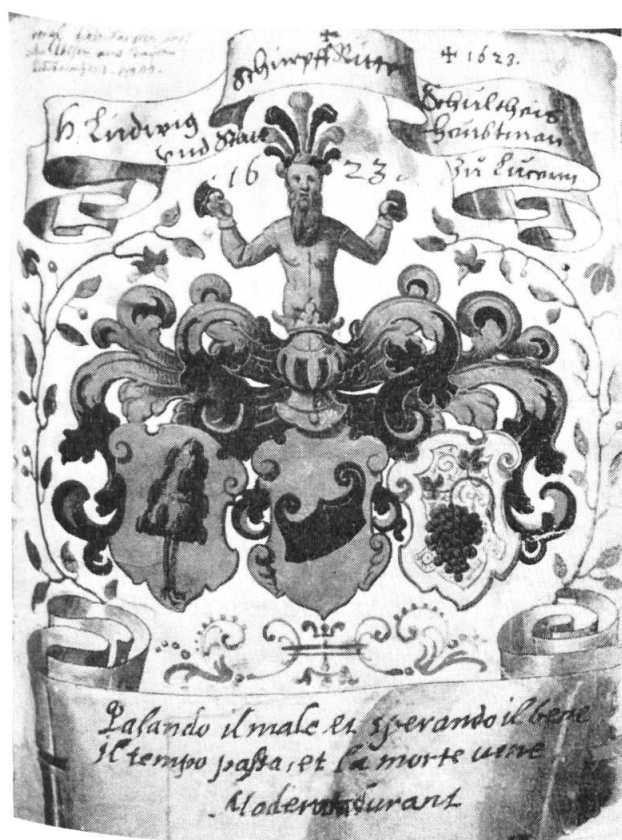 ✝ 1623.
Schürpff Ritter
H. Ludwig
Schultheis
und Statt
Haubtman
zu Lucern
16 23.
Pasando il male et sperando il bene
Il tempo passa, et la morte uene
Moderata durant